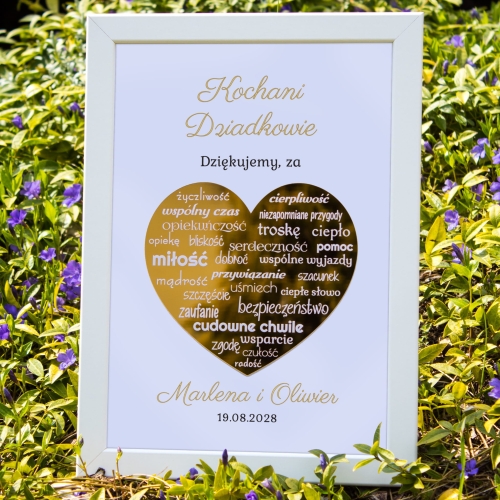 Kochani
Dziadkowie
Dziękujemy, za
życzliwość cierpliwość
wspólny czas niezapomniane przygody
opiekuńczość troskę ciepło
opiekę bliskość serdeczność pomoc
miłość dobroć wspólne wyjazdy
mądrość przywiązanie szacunek
szczęście uśmiech ciepłe słowo
zaufanie bezpieczeństwo
cudowne chwile
zgodę wsparcie
czułość
radość
Marlena i Oliwier
19.08.2028